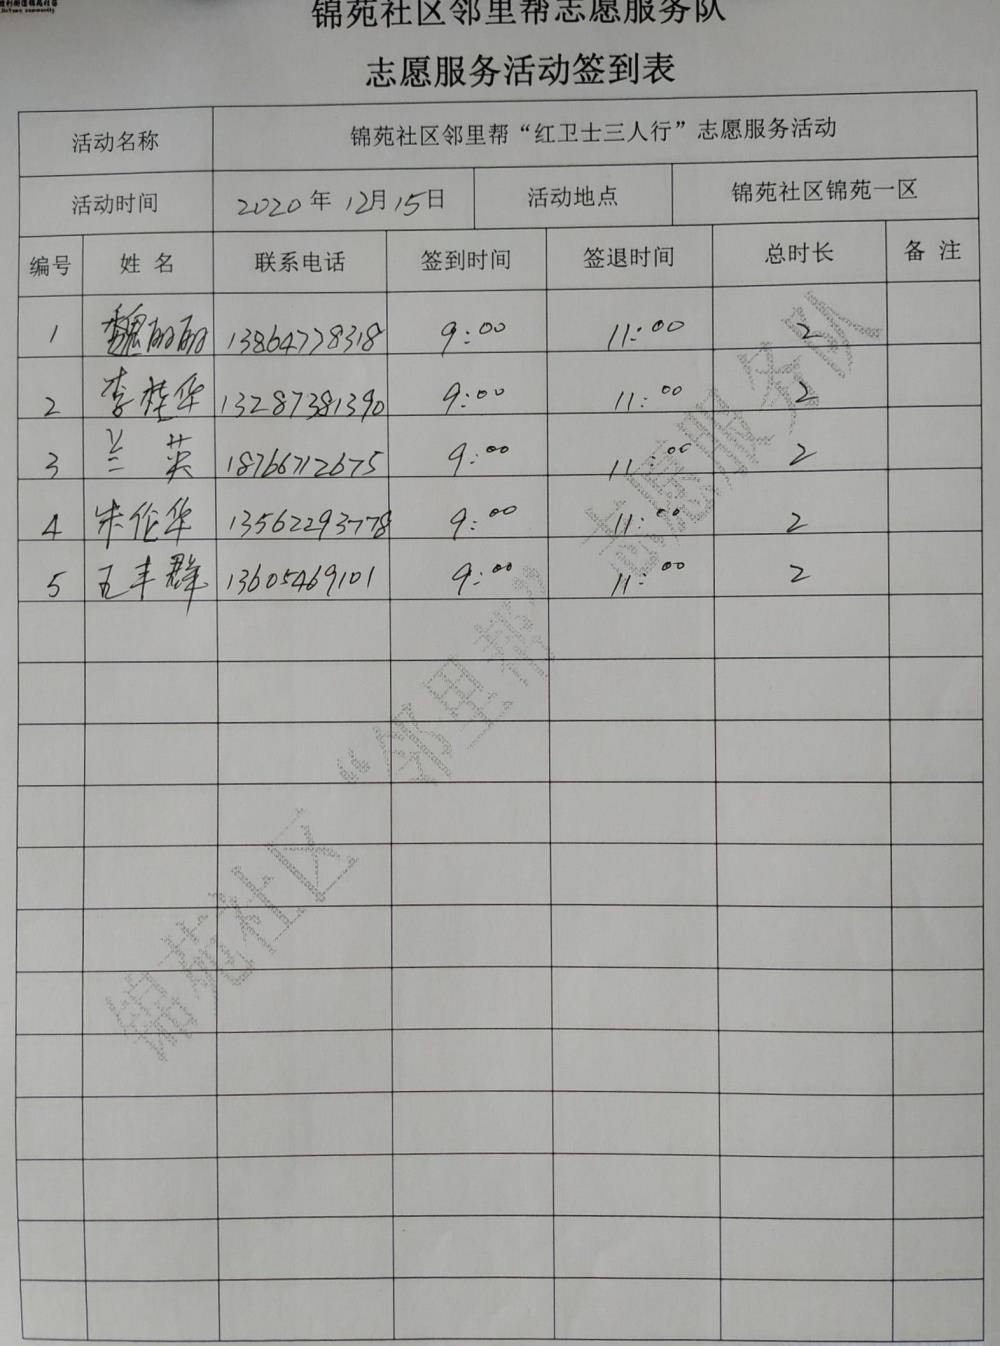 锦苑社区邻里帮志愿服务队
志愿服务活动签到表
活动名称 锦苑社区邻里帮“红卫士三人行”志愿服务活动
活动时间 2020年12月15日 活动地点 锦苑社区锦苑一区
编号 姓名 联系电话 签到时间 签退时间 总时长 备注
1 魏丽丽 13864778318 9:00 11:00 2
2 李桂华 13287381390 9:00 11:00 2
3 兰英 18766712675 9:00 11:00 2
4 朱伦华 13562293778 9:00 11:00 2
5 王丰群 13605469101 9:00 11:00 2
锦苑社区“邻里帮”志愿服务队